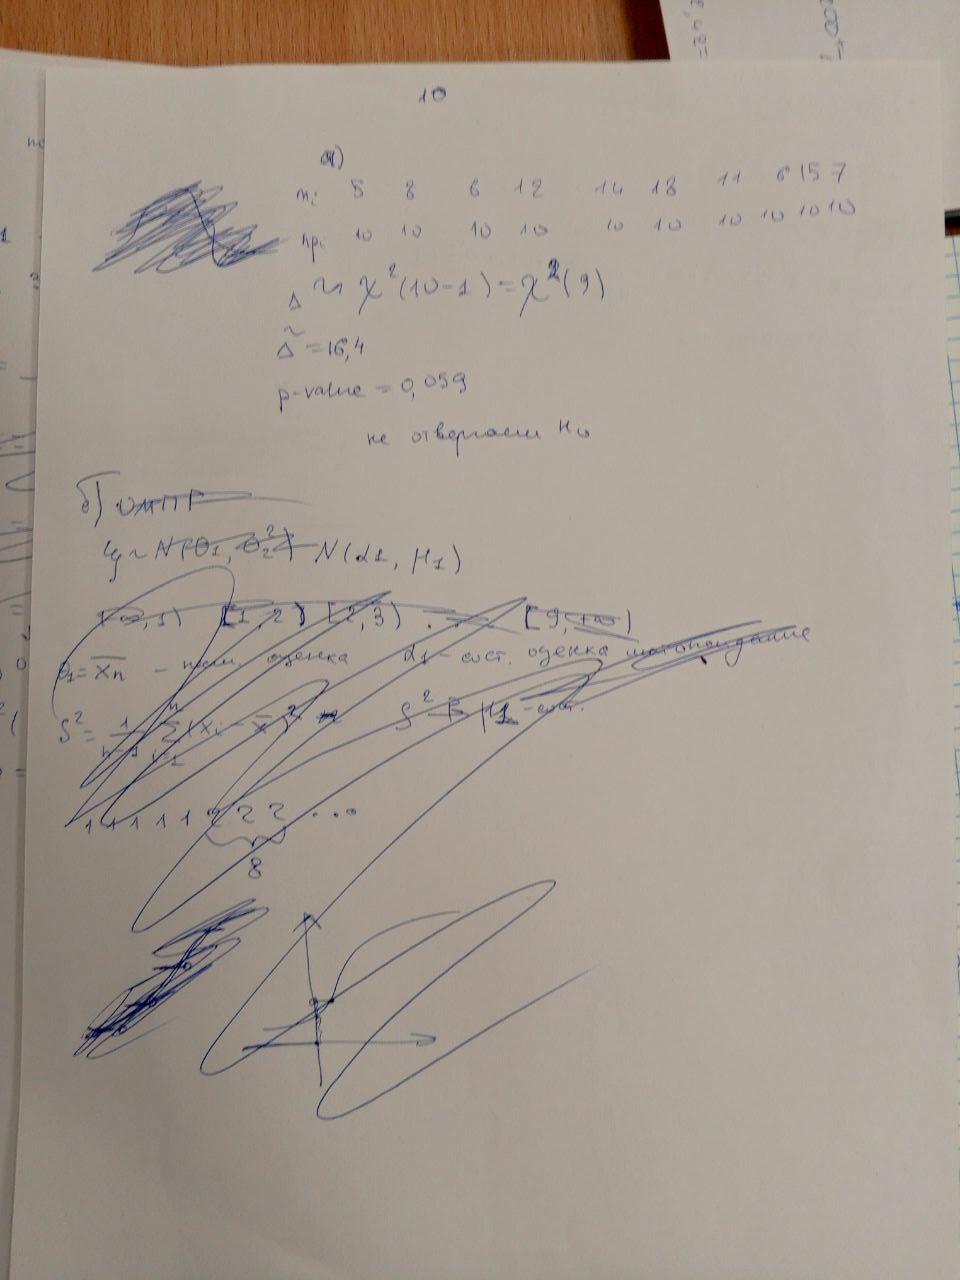 10
а)
nᵢ 5 8 6 12 14 18 11 6 15 7
npᵢ 10 10 10 10 10 10 10 10 10 10
Δ ~ χ²(10-1) = χ²(9)
Δ̃ = 16,4
p-value = 0,059
не отвергаем H₀
б) ОМПГ
ξ ~ N(θ₁, θ₂²) N(α1, μ1)
(-∞,1) [1,2) [2,3) ... [9,+∞)
θ₁ = X̄ₙ - оценка α1 - сост. оценка
S² = 1/(n-1) Σ(xᵢ - x̄)² S² μ1 - сост.
1 1 1 1 1 2 2 2 ...
8